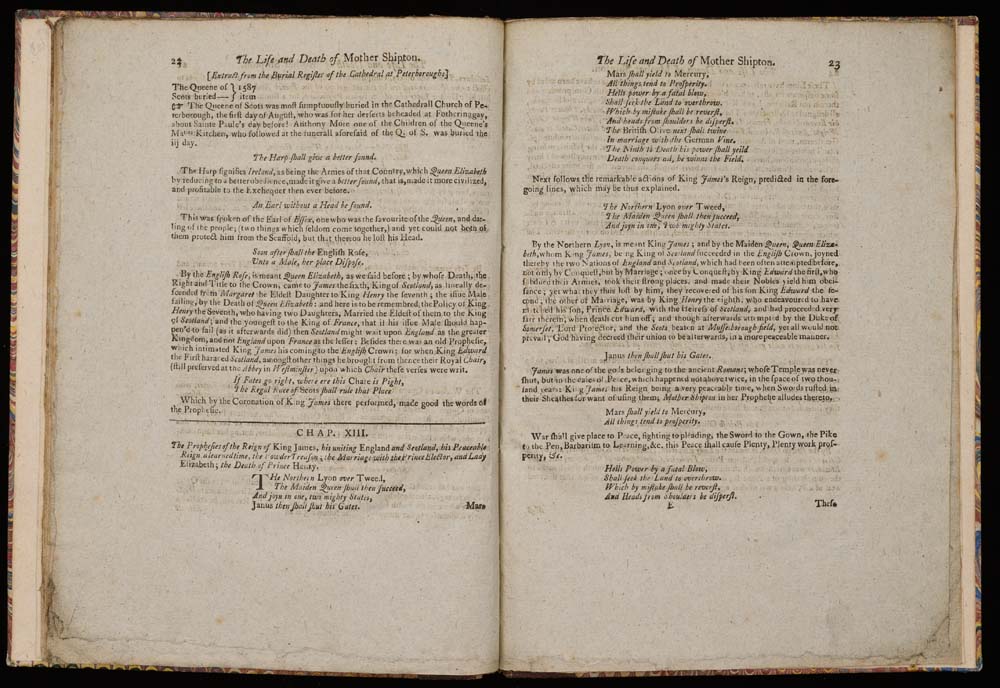 22 The Life and Death of Mother Shipton.
[Extract from the Burial Register of the Cathedral at Peterborough:]
The Queene of } 1587
Scots buried— } item
The Queene of Scots was most sumptuously buried in the Cathedrall Church of Pe-
terborough, the first day of August, who was for her deserts beheaded at Fotheringgay,
about Sainte Paule's day before: Anthony More one of the Children of the Queene's
Kitchen, who followed at the funerall aforesaid of the Q. of S. was buried the
iij day.
The Harp shall give a better sound.
The Harp signifies Ireland, as being the Armes of that Country, which Queen Elizabeth
by reducing to a better obedience, made it give a better sound, that is, made it more civilized,
and profitable to the Exchequer then ever before.
An Earl without a Head be found.
This was spoken of the Earl of Essex, one who was the favourite of the Queen, and dar-
ling of the people; (two things which seldom come together,) and yet could not both of
them protect him from the Scaffold, but that thereon he lost his Head.
Soon after shall the English Rose,
Unto a Male, her place Dispose.
By the English Rose, is meant Queen Elizabeth, as we said before; by whose Death, the
Right and Title to the Crown, came to James the sixth, King of Scotland, as lineally de-
scended from Margaret the Eldest Daughter to King Henry the seventh; the issue Male
failing, by the Death of Queen Elizabeth: and here is to be remembred, the Policy of King
Henry the Seventh, who having two Daughters, Married the Eldest of them to the King
of Scotland; and the youngest to the King of France, that if his issue Male should hap-
pen'd to fail (as it afterwards did) then Scotland might wait upon England as the greater
Kingdom, and not England upon France as the lesser: Besides there was an old Prophesie,
which intimated King James his coming to the English Crown; for when King Edward
the First harased Scotland, amongst other things he brought from thence their Royal Chair,
(still preserved at the Abbey in Westminster) upon which Chair these verses were writ.
If Fates go right, where ere this Chair is Pight,
The Regal Race of Scots shall rule that Place
Which by the Coronation of King James there performed, made good the words of
the Prophesie.
CHAP. XIII.
The Prophesies of the Reign of King James, his uniting England and Scotland, his Peaceable
Reign a learned time, the Powder Treason; the Marriage with the Prince Elector, and Lady
Elizabeth; the Death of Prince Henry.
THe Northern Lyon over Tweed,
The Maiden Queen shall then succeed,
And joyn in one, two mighty States,
Janus then shall shut his Gates.
Mars
The Life and Death of Mother Shipton. 23
Mars shall yield to Mercury,
All things tend to Prosperity.
Hells power by a fatal blow,
Shall seek the Land to overthrow.
Which by mistake shall be reverst,
And heads from shoulders be disperst.
The British Olive next shall twine
In marriage with the German Vine.
The Ninth to Death his power shall yeild
Death conquers all, he winns the Field.
Next follows the remarkable actions of King James's Reign, predicted in the fore-
going lines, which may be thus explained.
The Northern Lyon over Tweed,
The Maiden Queen shall then succeed,
And joyn in one, Two mighty States.
By the Northern Lyon, is meant King James; and by the Maiden Queen, Queen Eliza-
beth, whom King James, being King of Scotland succeeded in the English Crown, joyned
thereby the two Nations of England and Scotland, which had been often attempted before,
not only by Conquest, but by Marriage; once by Conquest, by King Edward the first, who
subdued their Armies, took their strong places, and made their Nobles yield him obei-
sance; yet what they thus lost by him, they recovered of his son King Edward the se-
cond; the other of Marriage, was by King Henry the eighth, who endeavoured to have
matched his son, Prince Edward, with the Heiress of Scotland, and had proceeded very
farr therein, when death cut him off; and though afterwards attempted by the Duke of
Somerset, Lord Protector, and the Scots beaten at Musseborough field, yet all would not
prevail; God having decreed their union to be afterwards, in a more peaceable manner.
Janus then shall shut his Gates.
Janus was one of the gods belonging to the ancient Romans; whose Temple was never
shut, but in the daies of Peace, which happened not above twice, in the space of two thou-
sand years: King James, his Reign being a very peaceably time, when Swords rusted in
their Sheathes for want of using them, Mother Shipton in her Prophesie alludes thereto.
Mars shall yield to Mercury,
All things tend to prosperity.
War shall give place to Peace, fighting to pleading, the Sword to the Gown, the Pike
to the Pen, Barbarism to Learning, &c. this Peace shall cause Plenty, Plenty work pros-
perity, &c.
Hells Power by a fatal Blow,
Shall seek the Land to overthrow.
Which by mistake shall be reverst,
And Heads from Shoulders be disperst.
E These